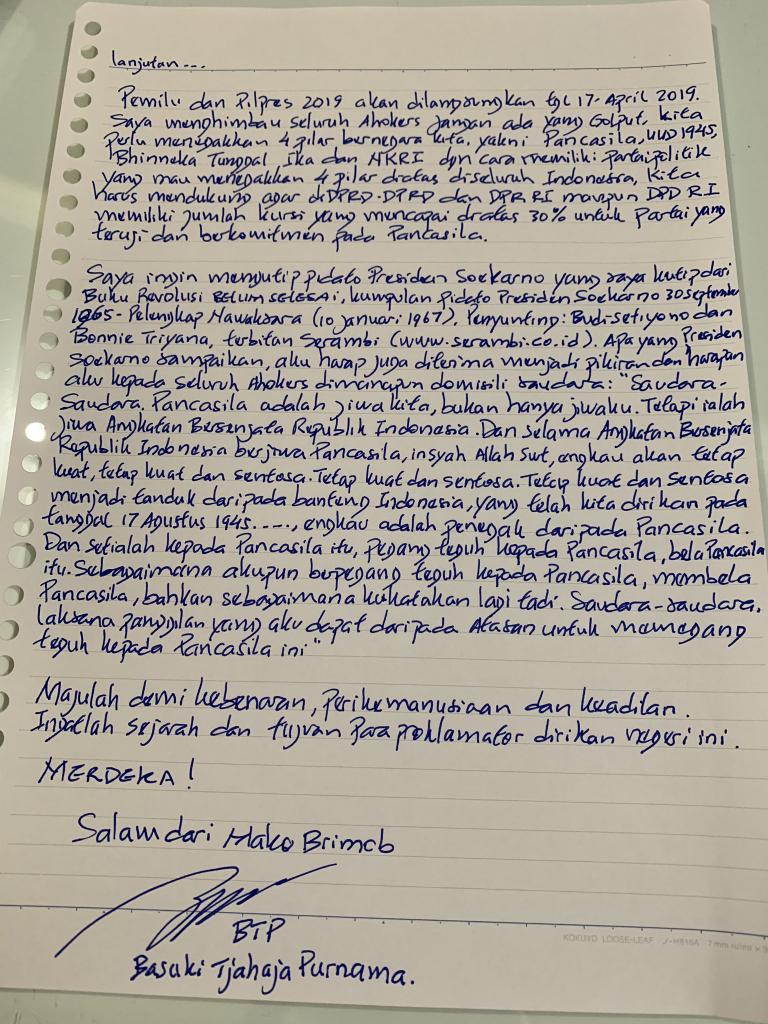 lanjutan...
Pemilu dan Pilpres 2019 akan dilangsungkan tgl 17-April 2019.
Saya menghimbau seluruh Ahokers jangan ada yang Golput, kita
perlu menegakkan 4 pilar bernegara kita, yakni Pancasila, UUD 1945,
Bhinneka Tunggal Ika dan NKRI dgn cara memiliki partai politik
yang mau menegakkan 4 pilar diatas diseluruh Indonesia, kita
harus mendukung agar di DPRD-DPRD dan DPR RI maupun DPD RI
memiliki jumlah kursi yang mencapai diatas 30% untuk Partai yang
teruji dan berkomitmen pada Pancasila.
Saya ingin mengutip pidato Presiden Soekarno yang saya kutip dari
Buku Revolusi BELUM SELESAI, kumpulan Pidato Presiden Soekarno 30 September
1965 - Pelengkap Nawaksara (10 januari 1967). Penyunting: Budi setiyono dan
Bonnie Triyana, terbitan Serambi (www.serambi.co.id). Apa yang Presiden
Soekarno sampaikan, aku harap juga diterima menjadi pikiran dan harapan
aku kepada seluruh Ahokers dimanapun domisili saudara: "Saudara-
Saudara. Pancasila adalah jiwa kita, bukan hanya jiwaku. Tetapi ialah
jiwa Angkatan Bersenjata Republik Indonesia. Dan selama Angkatan Bersenjata
Republik Indonesia berjiwa Pancasila, insyah Allah Swt, engkau akan tetap
kuat, tetap kuat dan sentosa. Tetap kuat dan sentosa. Tetap kuat dan sentosa
menjadi tanduk daripada banteng Indonesia, yang telah kita dirikan pada
tanggal 17 Agustus 1945. ...., engkau adalah penegak daripada Pancasila.
Dan setialah kepada Pancasila itu, pegang teguh kepada Pancasila, bela Pancasila
itu. Sebagaimana akupun berpegang teguh kepada Pancasila, membela
Pancasila, bahkan sebagaimana kukatakan lagi tadi. Saudara-saudara.
laksana panggilan yang aku dapat daripada Atasan untuk memegang
teguh kepada Pancasila ini"
Majulah demi kebenaran, perikemanusiaan dan keadilan.
Ingatlah sejarah dan tujuan para proklamator dirikan negeri ini.
MERDEKA!
Salam dari Mako Brimob
BTP
Basuki Tjahaja Purnama.
KOKUYO LOOSE-LEAF